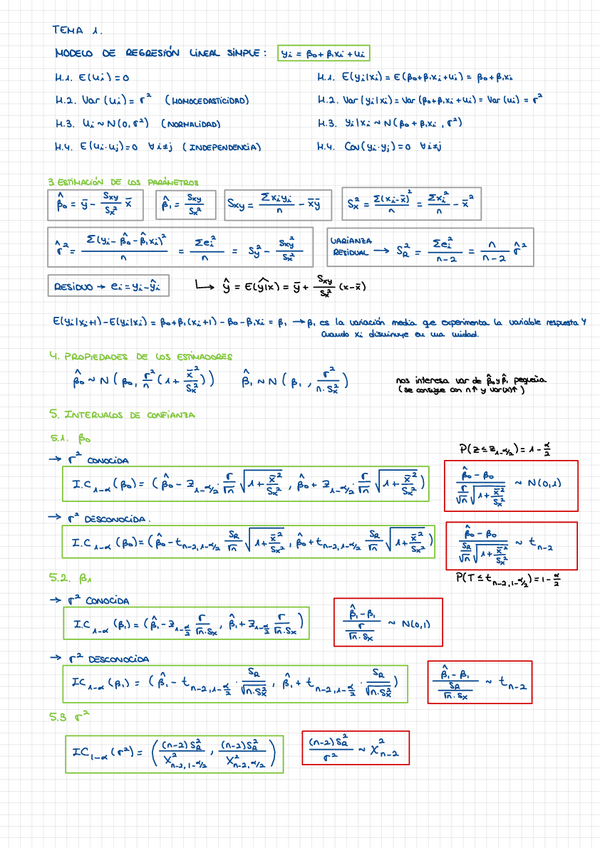 TEMA 1.
MODELO DE REGRESIÓN LINEAL SIMPLE: yᵢ = β₀ + β₁xᵢ + uᵢ
H.1. E(uᵢ) = 0
H.1. E(yᵢ|xᵢ) = E(β₀+β₁xᵢ+uᵢ) = β₀+β₁xᵢ
H.2. Var(uᵢ) = σ² (HOMOCEDASTICIDAD)
H.2. Var(yᵢ|xᵢ) = Var(β₀+β₁xᵢ+uᵢ) = Var(uᵢ) = σ²
H.3. uᵢ ~ N(0,σ²) (NORMALIDAD)
H.3. yᵢ|xᵢ ~ N(β₀+β₁xᵢ, σ²)
H.4. E(uᵢ·uⱼ)=0 ∀i≠j (INDEPENDENCIA)
H.4. Cov(yᵢ·yⱼ)=0 ∀i≠j
3. ESTIMACIÓN DE LOS PARÁMETROS
β̂₀ = ȳ - (Sxy/Sx²) x̄
β̂₁ = Sxy/Sx²
Sxy = Σxᵢyᵢ/n - x̄ȳ
Sx² = Σ(xᵢ-x̄)²/n = Σxᵢ²/n - x̄²
σ̂² = Σ(yᵢ-β̂₀-β̂₁xᵢ)²/n = Σeᵢ²/n = Sy² - Sxy²/Sx²
VARIANZA RESIDUAL → S_R² = Σeᵢ²/(n-2) = n/(n-2) σ̂²
RESIDUO → eᵢ = yᵢ-ŷᵢ
↳ ŷ = Ê(Y|x) = ȳ + (Sxy/Sx²)(x-x̄)
E(Yᵢ|xᵢ+1)-E(Yᵢ|xᵢ) = β₀+β₁(xᵢ+1)-β₀-β₁xᵢ = β₁ → β₁ es la variación media que experimenta la variable respuesta Y
cuando xᵢ disminuye en una unidad.
4. PROPIEDADES DE LOS ESTIMADORES
β̂₀ ~ N(β₀, σ²/n (1 + x̄²/Sx²))
β̂₁ ~ N(β₁, σ²/(n·Sx²))
nos interesa var de β̂₀ y β̂₁ pequeña
(se consigue con n↑ y var(x)↑)
5. INTERVALOS DE CONFIANZA
5.1. β₀
P(Z ≤ z₁₋α/₂) = 1 - α/2
→ σ² CONOCIDA
I.C₁₋α(β₀) = (β̂₀ - z₁₋α/₂ · σ/√n √(1+x̄²/Sx²), β̂₀ + z₁₋α/₂ · σ/√n √(1+x̄²/Sx²))
(β̂₀ - β₀)/(σ/√n √(1+x̄²/Sx²)) ~ N(0,1)
→ σ² DESCONOCIDA.
I.C₁₋α(β₀) = (β̂₀ - tₙ₋₂,₁₋α/₂ S_R/√n √(1+x̄²/Sx²), β̂₀ + tₙ₋₂,₁₋α/₂ S_R/√n √(1+x̄²/Sx²))
(β̂₀ - β₀)/(S_R/√n √(1+x̄²/Sx²)) ~ tₙ₋₂
5.2. β₁
P(T ≤ tₙ₋₂,₁₋α/₂) = 1 - α/2
→ σ² CONOCIDA
I.C₁₋α(β₁) = (β̂₁ - z₁₋α/₂ σ/(√n·Sx), β̂₁ + z₁₋α/₂ σ/(√n·Sx))
(β̂₁ - β₁)/(σ/(√n·Sx)) ~ N(0,1)
→ σ² DESCONOCIDA
IC₁₋α(β₁) = (β̂₁ - tₙ₋₂,₁₋α/₂ · S_R/√(n·Sx²), β̂₁ + tₙ₋₂,₁₋α/₂ · S_R/√(n·Sx²))
(β̂₁ - β₁)/(S_R/(√n·Sx)) ~ tₙ₋₂
5.3 σ²
IC₁₋α(σ²) = ((n-2)S_R²/χ²ₙ₋₂,₁₋α/₂, (n-2)S_R²/χ²ₙ₋₂,α/₂)
(n-2)S_R²/σ² ~ χ²ₙ₋₂